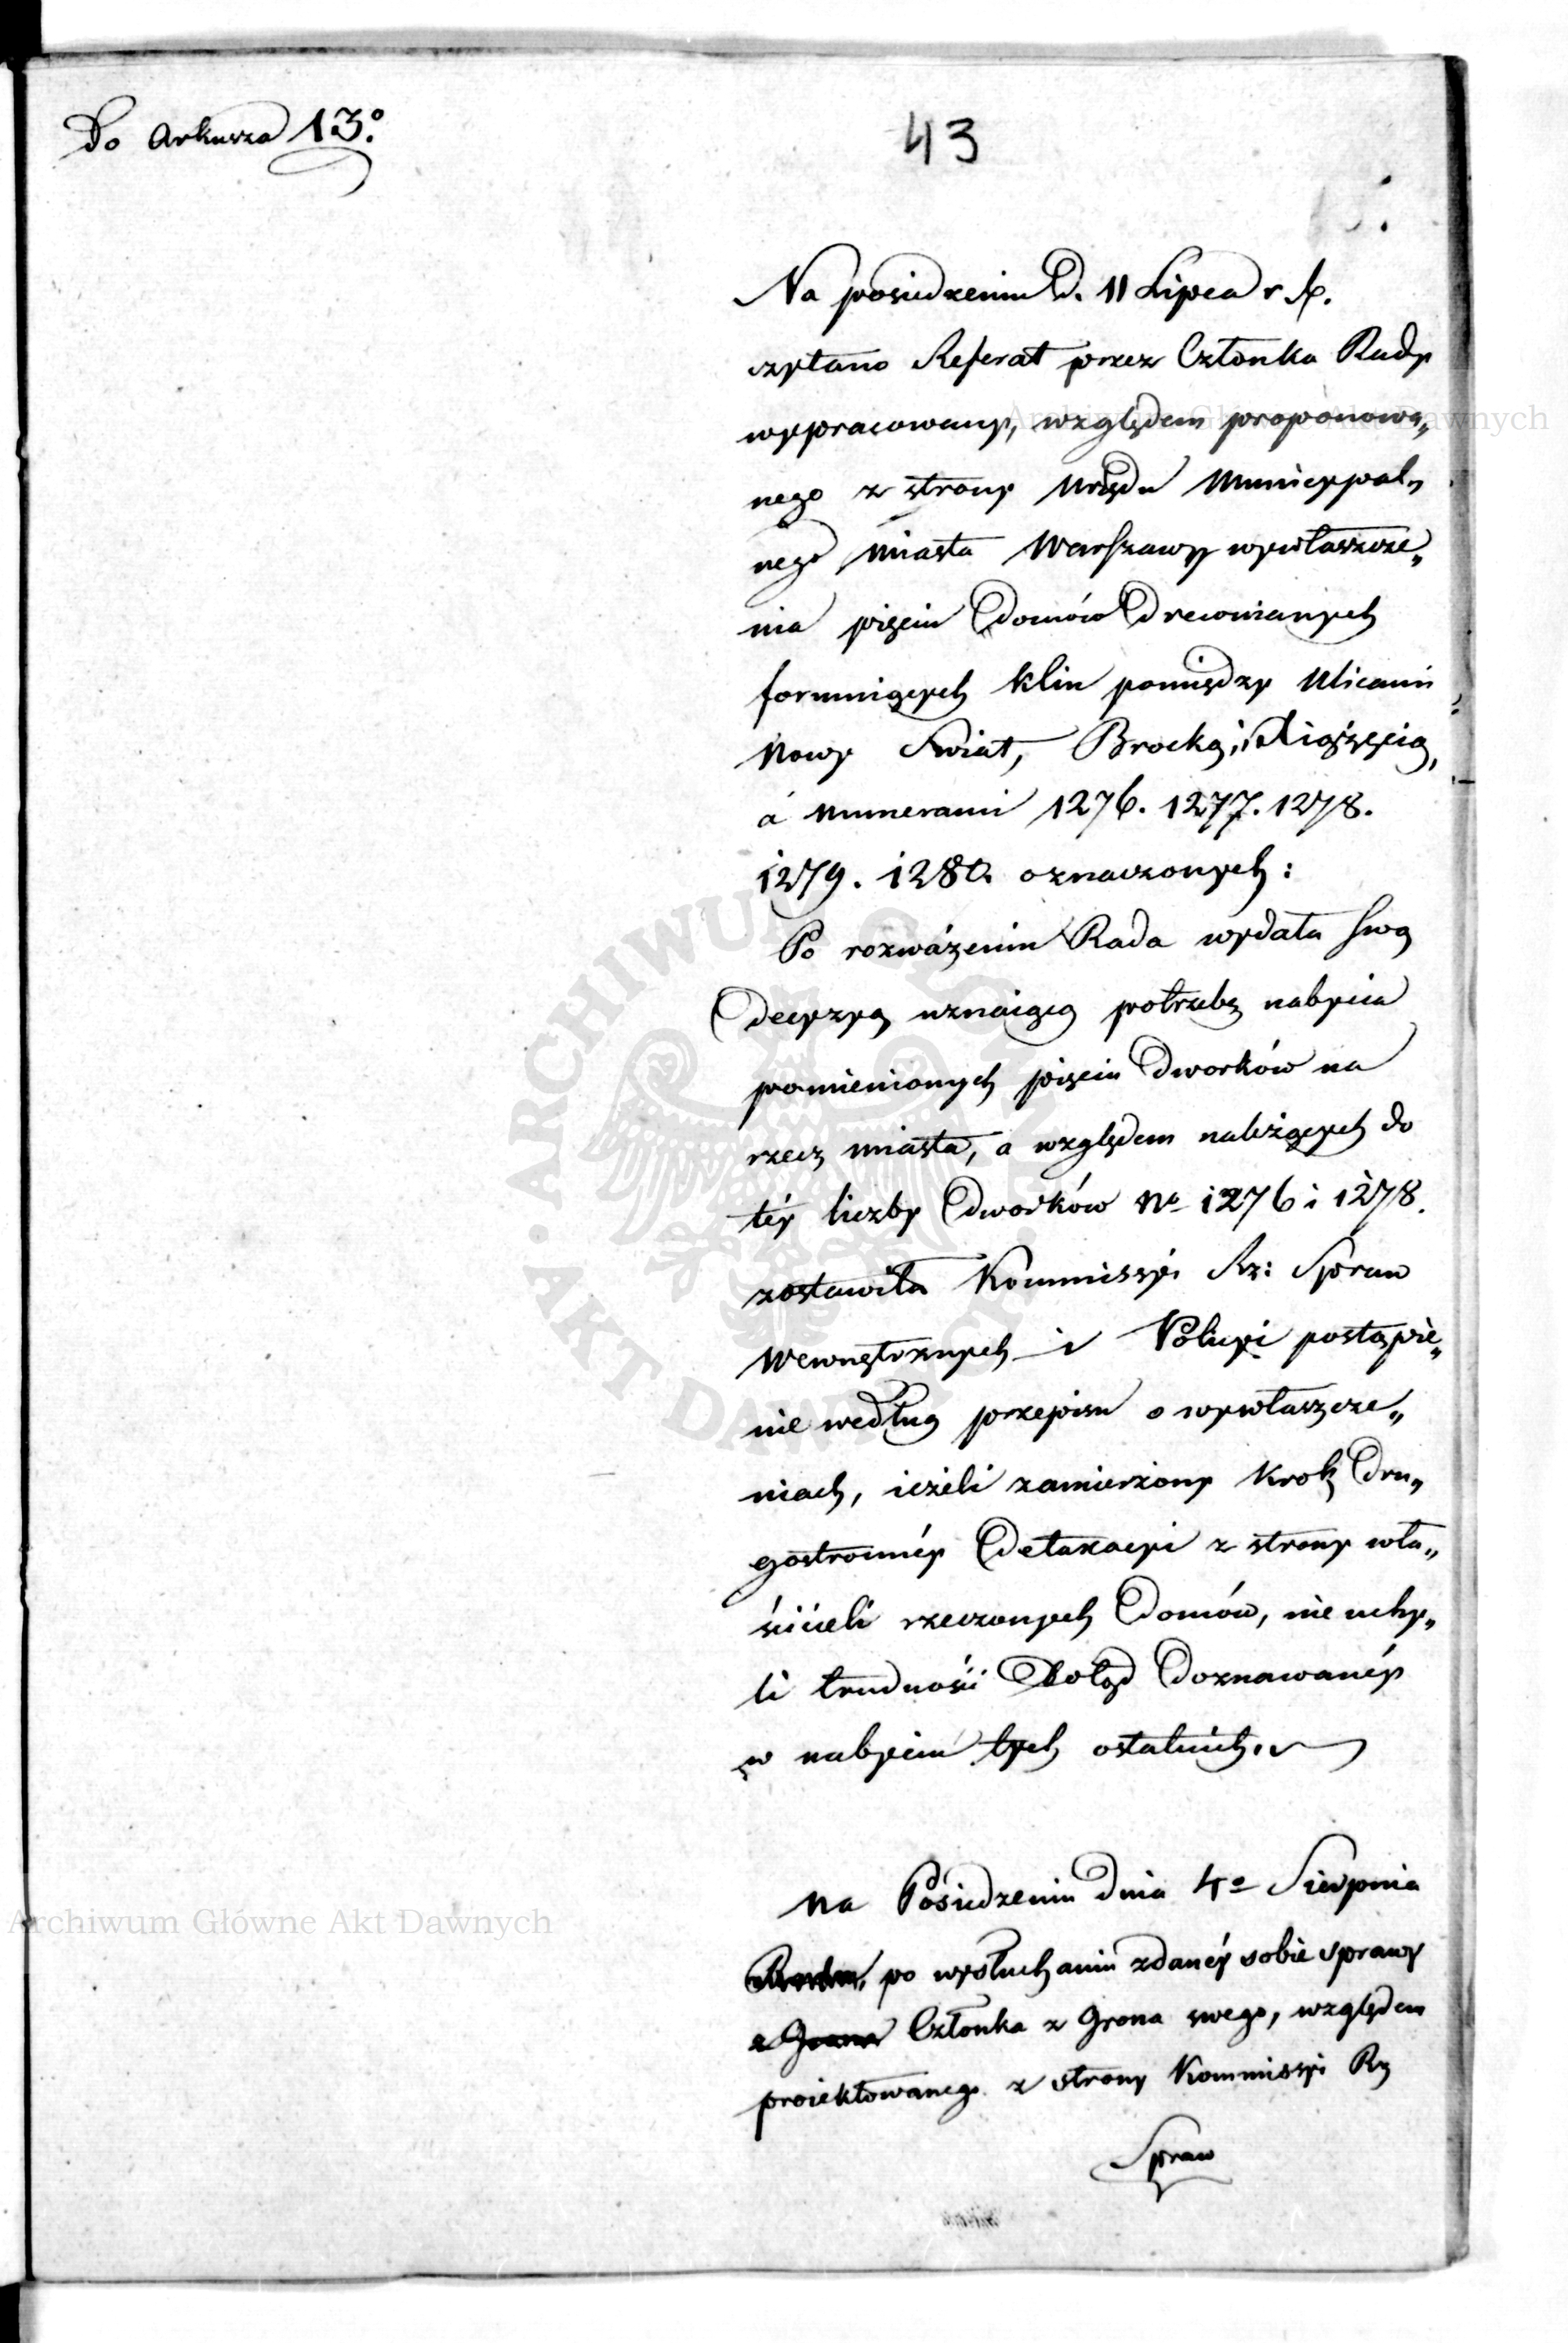 Do Arkusza 13º
43
Na posiedzeniu d. 11 Lipca r. b.
czytano Referat przez Członka Rady
wypracowany, względem proponowa„
nego z strony Urzędu Municypal„
nego Miasta Warszawy wywłaszcze„
nia pięciu Domów Drewnianych
formuiących klin pomiędzy Ulicami
Nowy Swiat, Bracką, i Xiążęcią,
a numerami 1276. 1277. 1278.
1279. 1280. oznaczonych:
Po rozważeniu Rada wydała swą
Decyzyą uznaiącą potrzebę nabycia
pomienionych pięciu Dworków na
rzecz miasta, a względem należących do
téy liczby Dworków Nº 1276 i 1278.
zostawiła Kommissyi Rz: Spraw
Wewnętrznych i Policyi postąpie„
nie według przepisu o wywłaszcze„
niach, ieżeli zamierzony krok dru„
gostronnéy Detaxacyi z strony wła„
ścicieli rzeczonych Domów, nie uchy„
li trudności dotąd doznawanéy
w nabyciu tych ostatnich.
Na Posiedzeniu dnia 4º Sierpnia
po wysłuchaniu zdanéy sobie sprawy
Członka z Grona swego, względem
proiektowanego z strony Kommissyi Rz
Spraw
Archiwum Główne Akt Dawnych
Archiwum Główne Akt Dawnych
ARCHIWUM GŁÓWNE AKT DAWNYCH